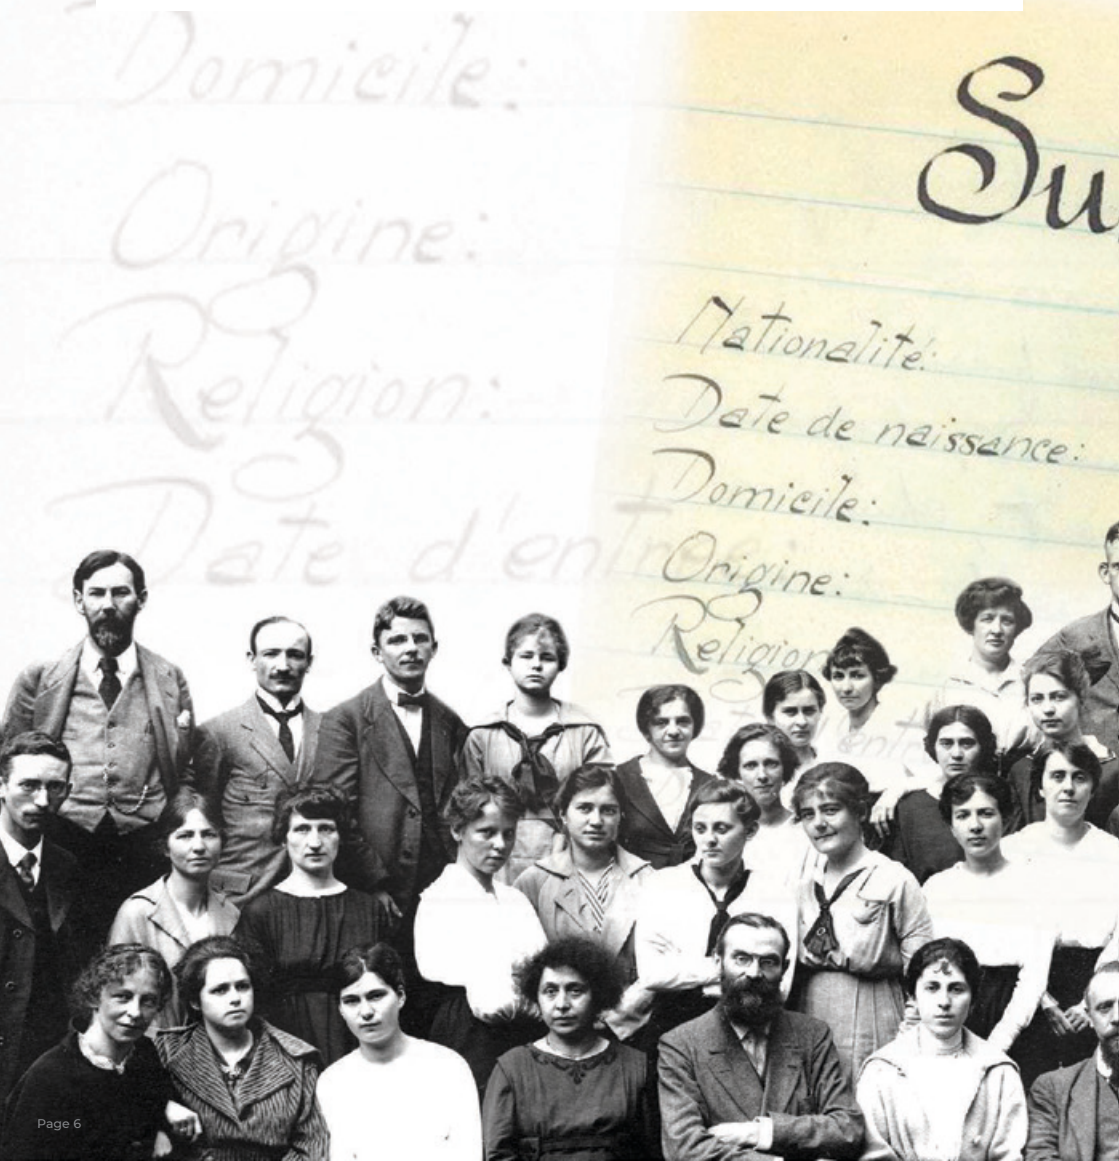 Domicile:
Origine:
Religion:
Date d'entrée:
Su
Nationalité:
Date de naissance:
Domicile:
Origine:
Religion
Page 6